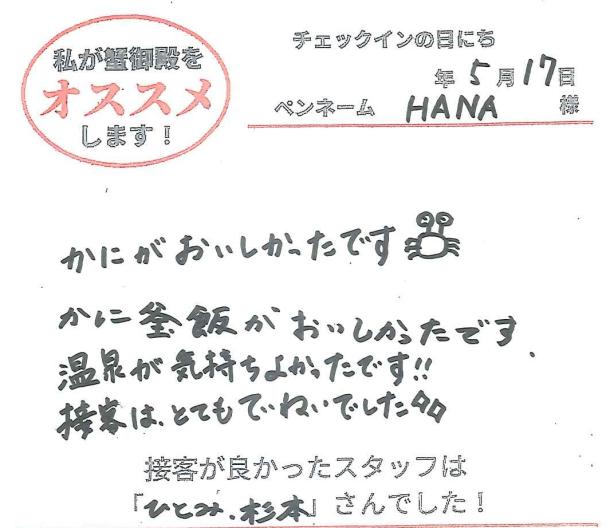 私が蟹御殿を
オススメ
します！
チェックインの日にち
年5月17日
ペンネーム HANA 様
かにがおいしかったです
かに釜飯がおいしかったです
温泉が気持ちよかったです!!
接客は、とてもていねいでした
接客が良かったスタッフは
「ひとみ、杉本」さんでした！